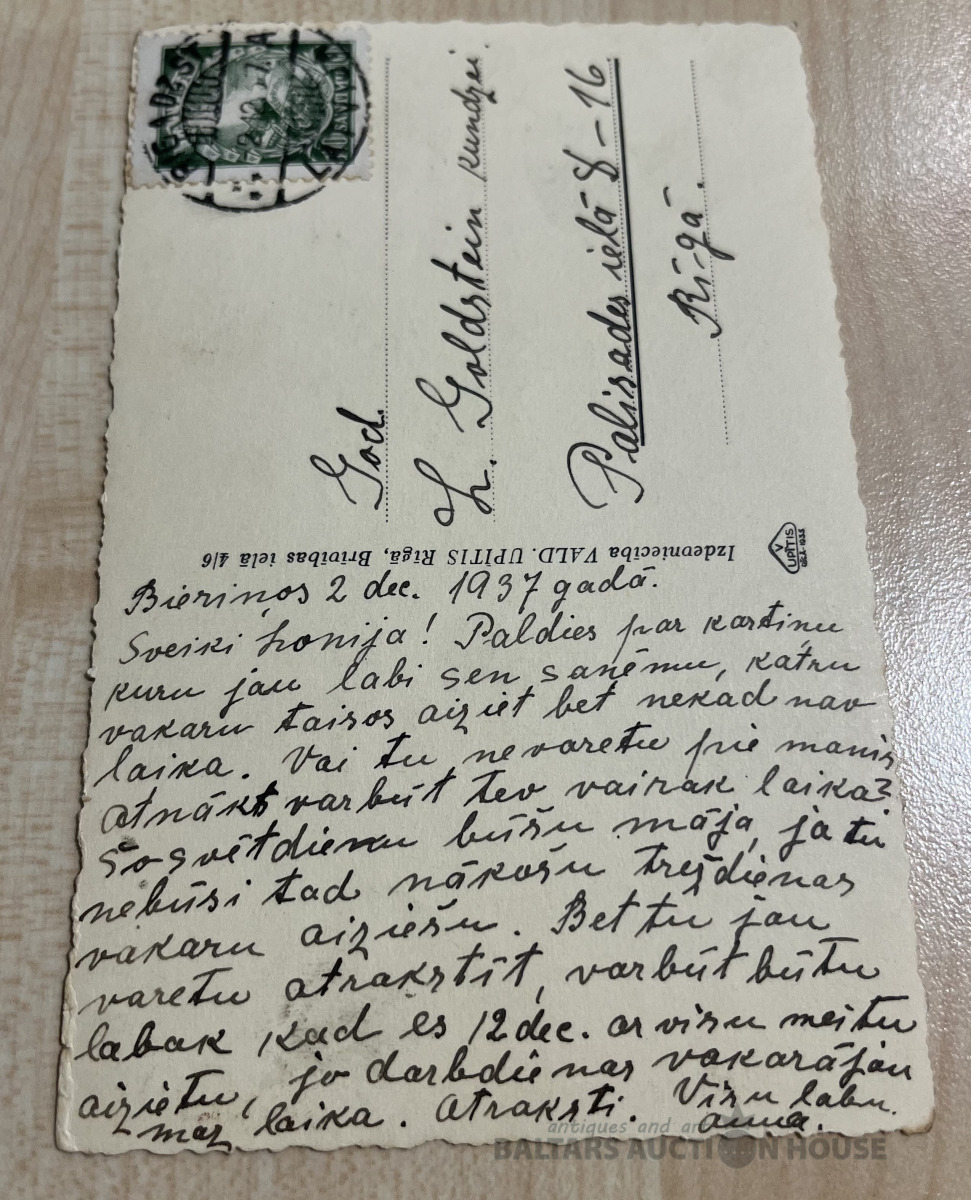 God.
L. Goldstein kundzei.
Palisades ielā 8-16
Rī-gā.
Izdevniecība VALD. UPĪTIS Rīgā, Brīvības ielā 4/6
V
UPĪTIS
Bieriņos 2 dec. 1937 gadā.
Sveiki Lonija! Paldies par kartiņu
kuru jau labi sen saņēmu, katru
vakaru taisos aiziet bet nekad nav
laika. Vai tu nevaretu pie manis
atnākt varbūt tev vairak laika?
Šo svētdienu būšu māja, ja tu
nebūsi tad nākošu trešdienas
vakaru aiziešu. Bet tu jau
varetu atrakstīt, varbūt būtu
labak kad es 12 dec. ar visu meitu
aizietu, jo darbdienas vakarā jau
maz laika. Atraksti. Visu labu.
Anna.
antiques and art
BALTARS AUCTION HOUSE